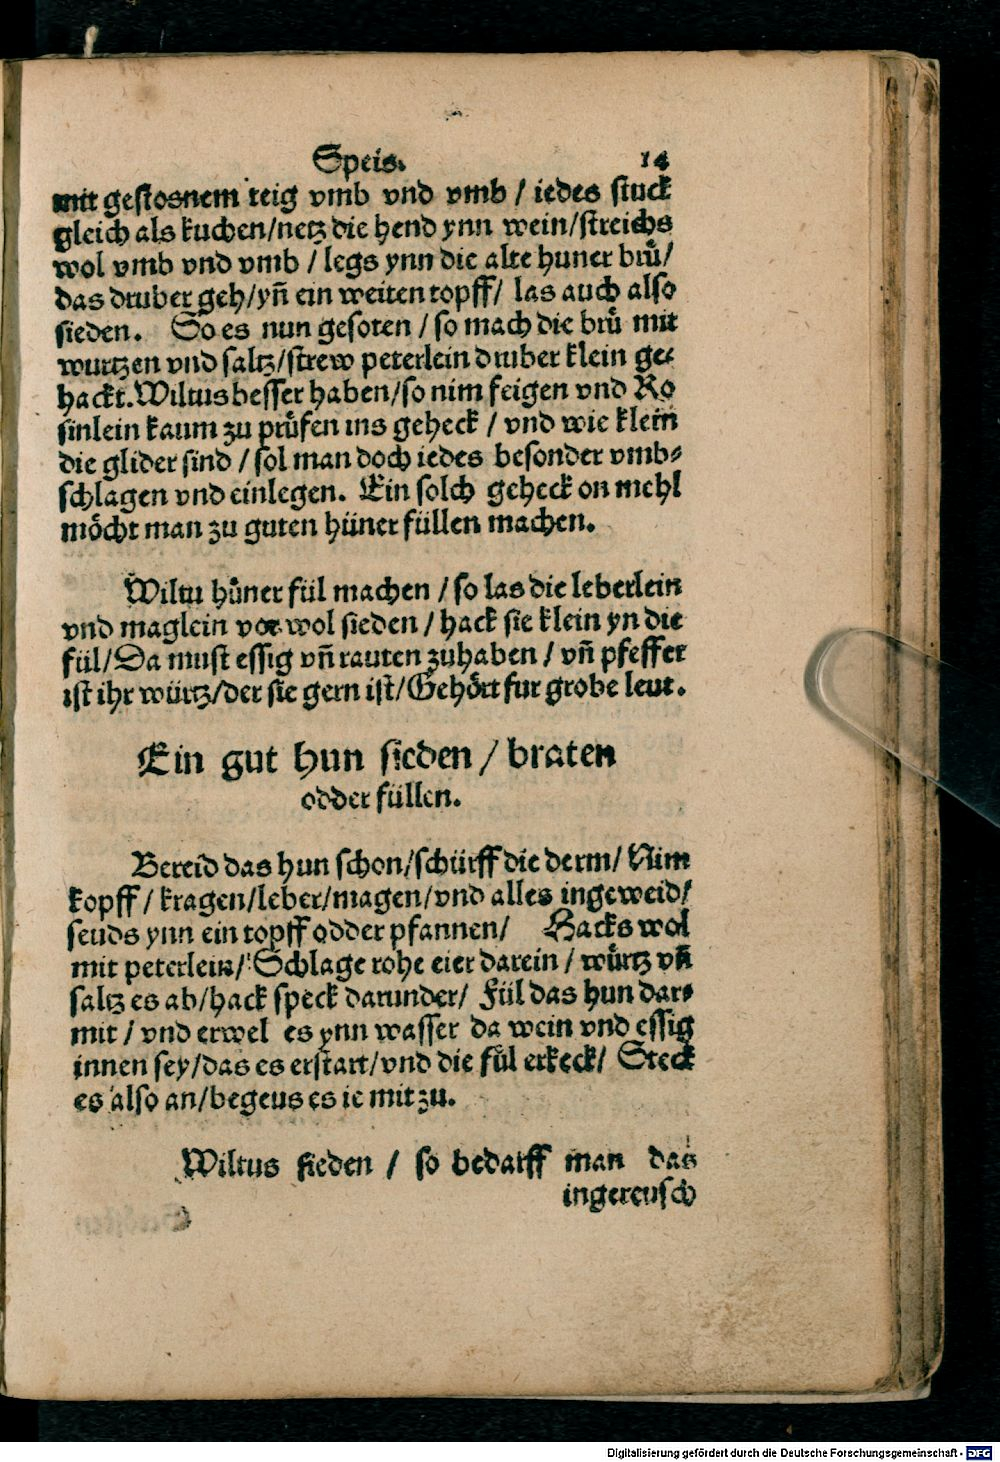 Speis. 14
mit gestosnem teig vmb vnd vmb / iedes stuck
gleich als kuchen/netz die hend ynn wein/streichs
wol vmb vnd vmb / legs ynn die alte huner bruͤ/
das druber geh/yn̄ ein weiten topff/ las auch also
sieden. So es nun gesoten / so mach die bruͤ mit
wurtzen vnd saltz/strew peterlein druber klein ge⸗
hackt.Wiltus besser haben/so nim feigen vnd Ro
sinlein kaum zu pruͤfen ins geheck / vnd wie klein
die glider sind / sol man doch iedes besonder vmb⸗
schlagen vnd einlegen. Ein solch geheck on mehl
moͤcht man zu guten hüner füllen machen.
Wiltu huͤner fül machen / so las die leberlein
vnd maglein vor wol sieden / hack sie klein yn die
fül/Da must essig vn̄ rauten zuhaben / vn̄ pfeffer
ist ihr würtz/der sie gern ist/Gehoͤrt fur grobe leut.
Ein gut hun sieden / braten
odder füllen.
Bereid das hun schon/schürff die derm/ Nim
kopff / kragen/leber/magen/vnd alles ingeweid/
seuds ynn ein topff odder pfannen/ Hacks wol
mit peterlein/ Schlage rohe eier darein / wuͤrtz vn̄
saltz es ab/hack speck darunder/ Fül das hun dar⸗
mit / vnd erwel es ynn wasser da wein vnd essig
innen sey/das es erstart/vnd die fuͤl erkeck/ Steck
es also an/begeus es ie mit zu.
Wiltus sieden / so bedarff man das
ingereusch
Digitalisierung gefördert durch die Deutsche Forschungsgemeinschaft - DFG